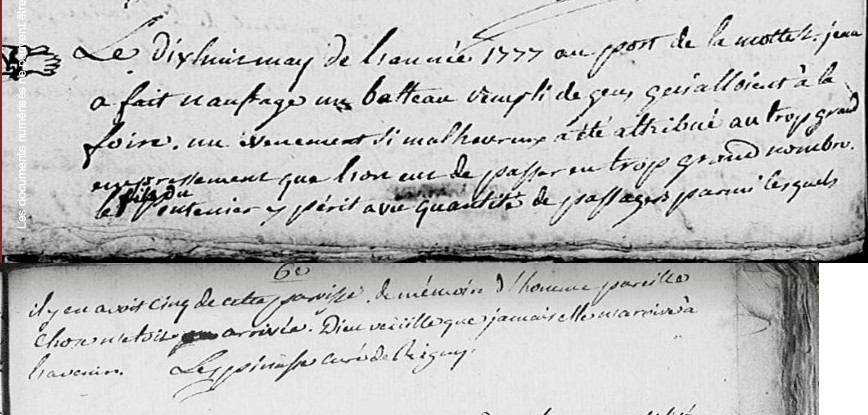 Le dixhuit may de l'année 1777 au port de la motte St. jean
a fait naufrage un batteau rempli de gens qui alloient à la
foire. un évenement si malheureux a été attribué au trop grand
empressement que l'on eut de passer en trop grand nombre.
le fils du pontenier y périt avec quantité de passagers parmi lesquels
6e
il y en avoit cinq de cette parroisse. de mémoire d'homme pareille
chose n'etoit arrivée. Dieu veüille que jamais elle n'arrive à
l'avenir. Lespinasse curé de Rigny
Les documents numérisés ne peuvent être